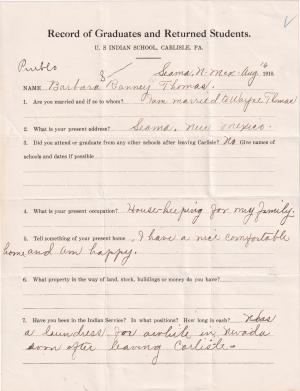 Record of Graduates and Returned Students.
U. S INDIAN SCHOOL, CARLISLE, PA.
Pueblo
Seama, N. Mex. Aug 16 1910.
NAME Barbara Thomas.
1. Are you married and if so to whom? I am married to Wayne Thomas
2. What is your present address? Seama, New Mexico.
3. Did you attend or graduate from any other schools after leaving Carlisle? No Give names of
schools and dates if possible
4. What is your present occupation? House-keeping for my family.
5. Tell something of your present home I have a nice comfortable
home and am happy.
6. What property in the way of land, stock, buildings or money do you have?
7. Have you been in the Indian Service? In what positions? How long in each? I was
a laundress for awhile in Nevada
soon after leaving Carlisle.